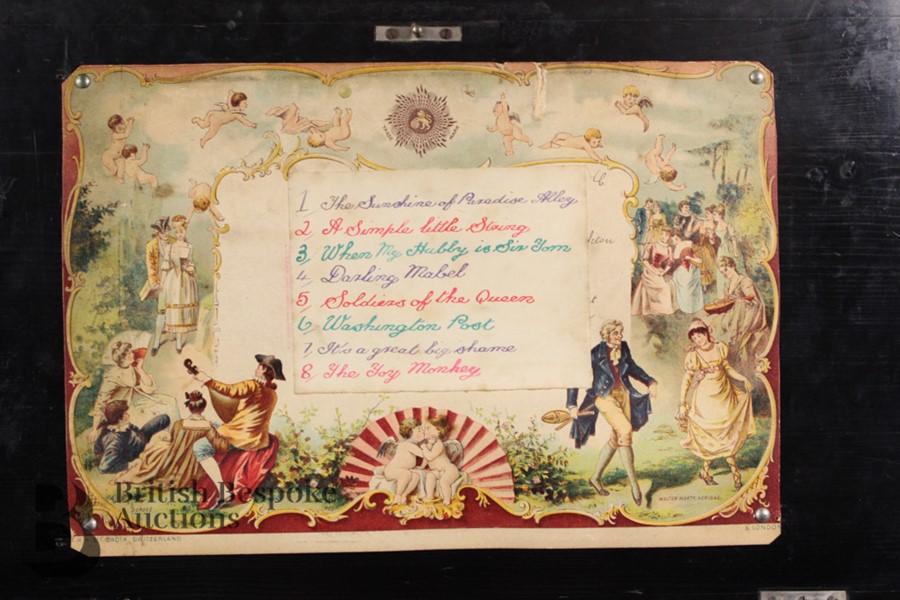 1 The Sunshine of Paradise Alley
2 A Simple little String
3 When My Hubby is Sir Tom
4 Darling Mabel
5 Soldiers of the Queen
6 Washington Post
7 It's a great big shame
8 The Toy Monkey
British Bespoke
Auctions
SWITZERLAND
& LONDON